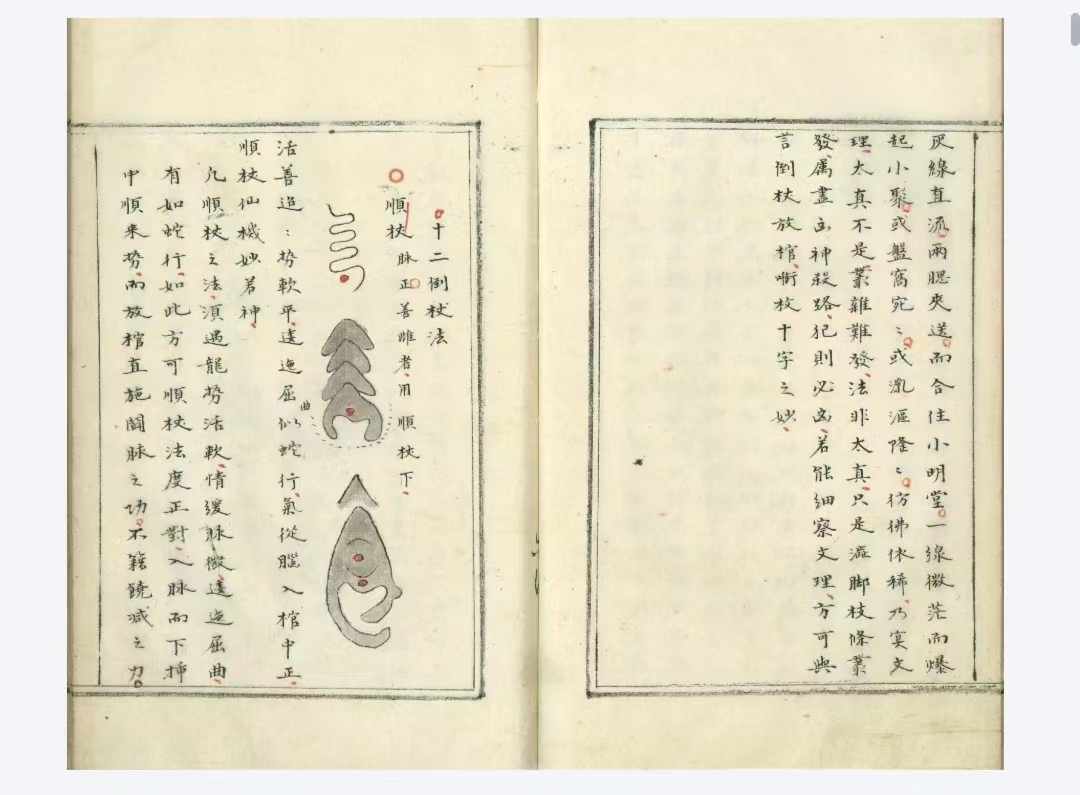 灰線直流兩腮夾送而合住小明堂一線微茫而爆
起小聚或盤窩宛〻或乳漚隆〻彷彿休稀乃寔文
理太真不是叢雜難發法非太真只是漚脚枝條叢
發属盡幽神殺路犯則必凶若能細察文理方可與
言倒杖放棺喞枚十字之妙
十二倒杖法
順杖脉正善雌者用順杖下
曲
活善迢〻勢軟平逶迤屈似蛇行氣從腦入棺中正
順杖仙機妙若神
凡順杖之法須遇龍勢活軟情緩脉微逶迤屈曲
有如蛇行如此方可順杖法度正對入脉而下揷
中順来勢而放棺直施闘脉之功不籍饒减之力